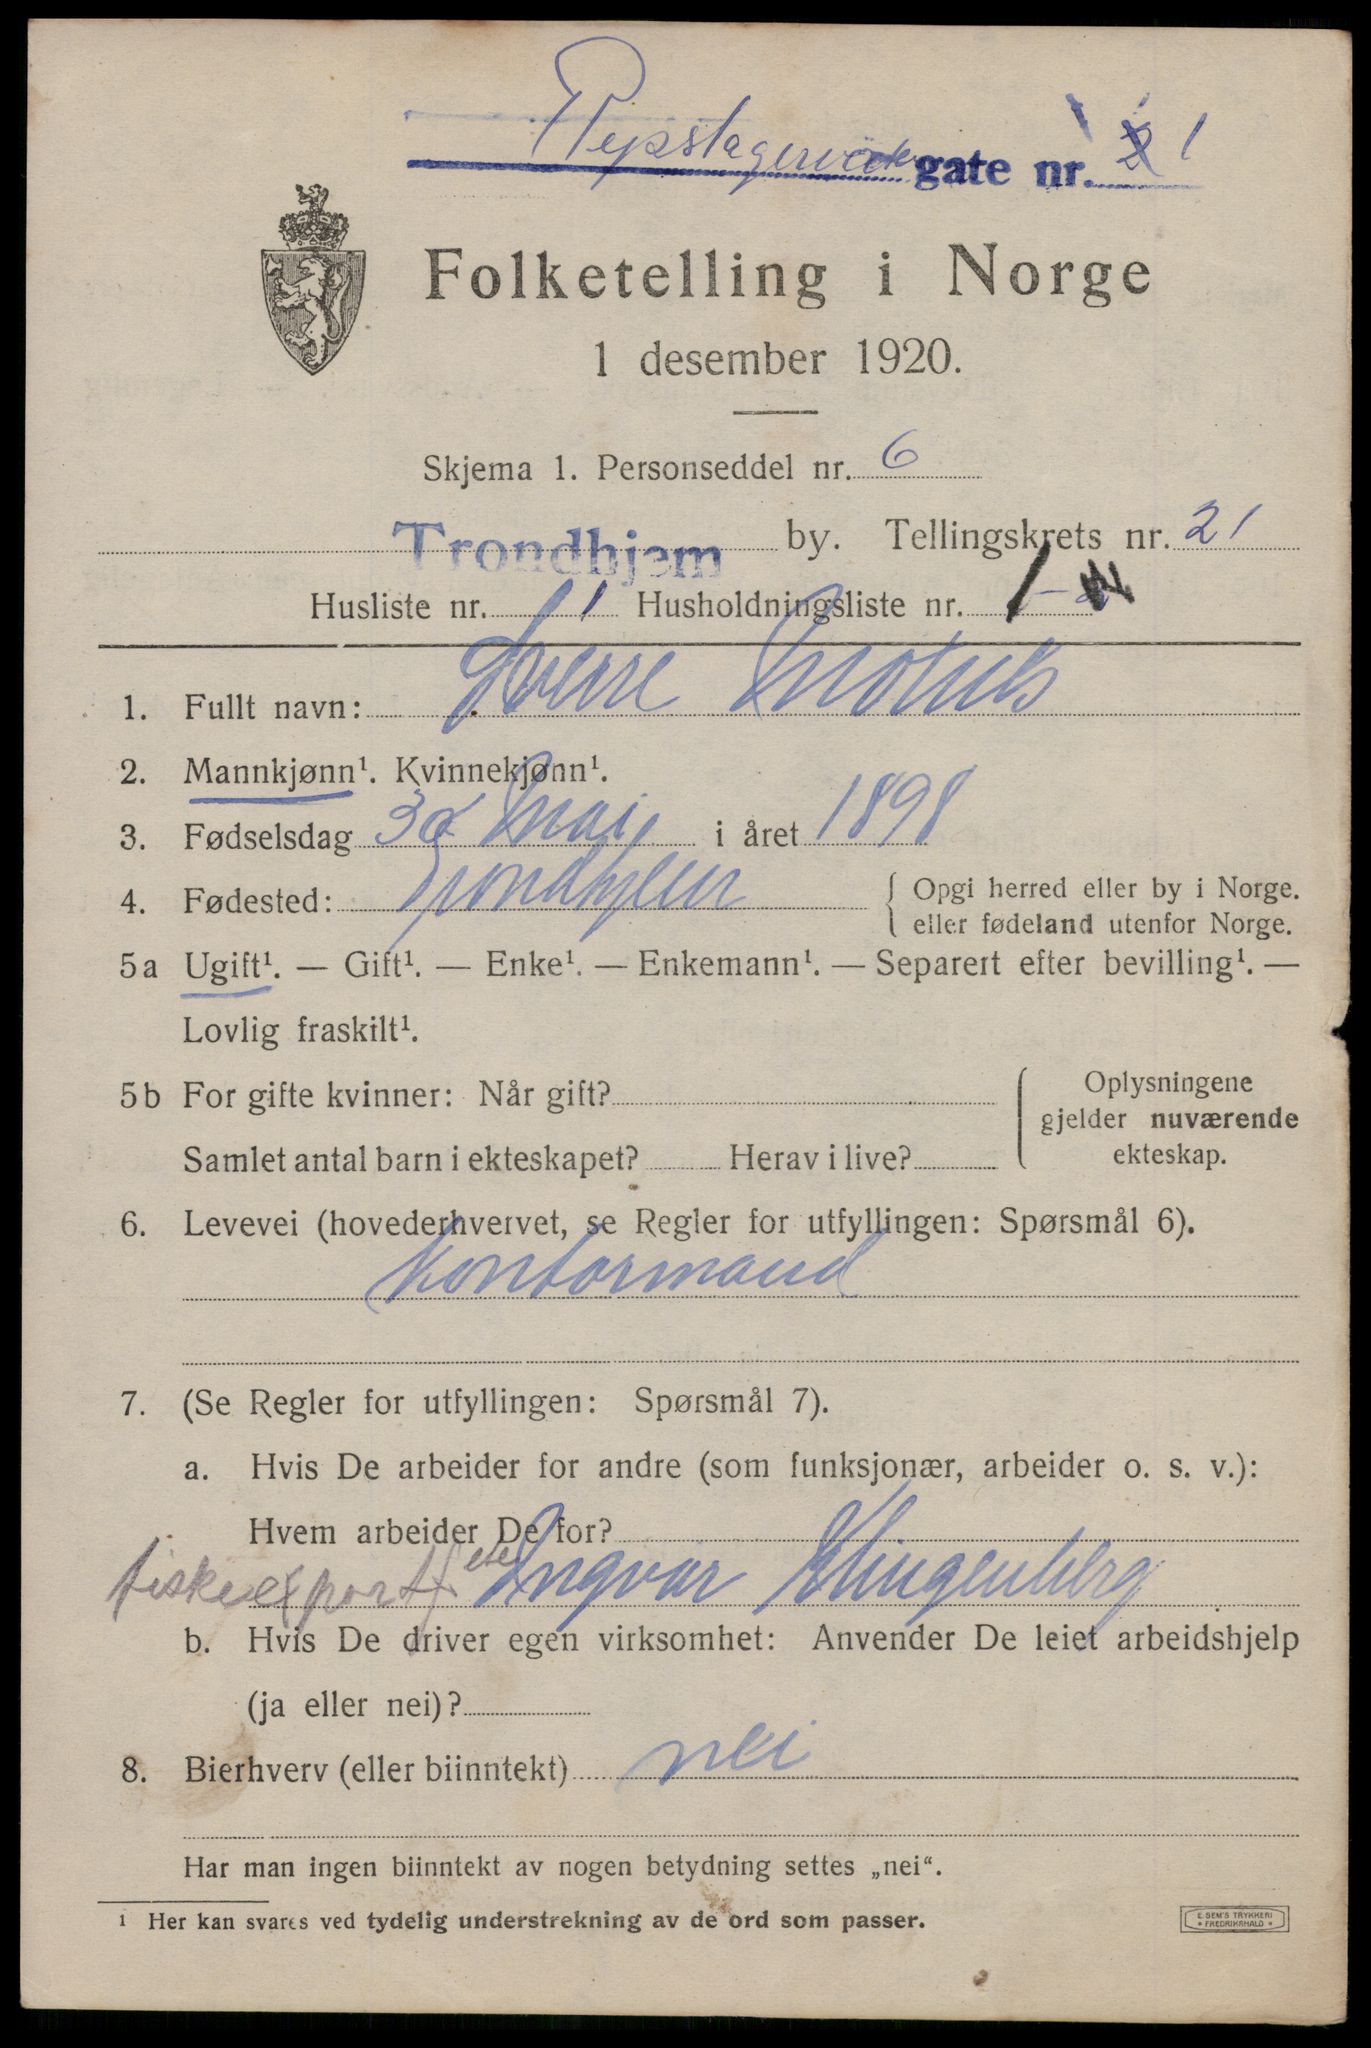 gate nr. 1
Folketelling i Norge
1 desember 1920.
Skjema 1. Personseddel nr. 6
Trondhjem by. Tellingskrets nr. 21
Husliste nr. 11 Husholdningsliste nr. 1
1. Fullt navn: Sverre
2. Mannkjønn¹. Kvinnekjønn¹.
3. Fødselsdag Mai i året 1898
4. Fødested: Trondhjem { Opgi herred eller by i Norge.
eller fødeland utenfor Norge.
5a Ugift¹. — Gift¹. — Enke¹. — Enkemann¹. — Separert efter bevilling¹. —
Lovlig fraskilt¹.
5b For gifte kvinner: Når gift? Oplysningene
gjelder nuværende
Samlet antal barn i ekteskapet? Herav i live? ekteskap.
6. Levevei (hovederhvervet, se Regler for utfyllingen: Spørsmål 6).
Kontormand
7. (Se Regler for utfyllingen: Spørsmål 7).
a. Hvis De arbeider for andre (som funksjonær, arbeider o. s. v.):
Hvem arbeider De for?
fiskeexport Ingvar Klingenberg
b. Hvis De driver egen virksomhet: Anvender De leiet arbeidshjelp
(ja eller nei)?
8. Bierhverv (eller biinntekt) nei
Har man ingen biinntekt av nogen betydning settes „nei“.
1 Her kan svares ved tydelig understrekning av de ord som passer.
E. SEM'S TRYKKERI
* FREDRIKRHALD *